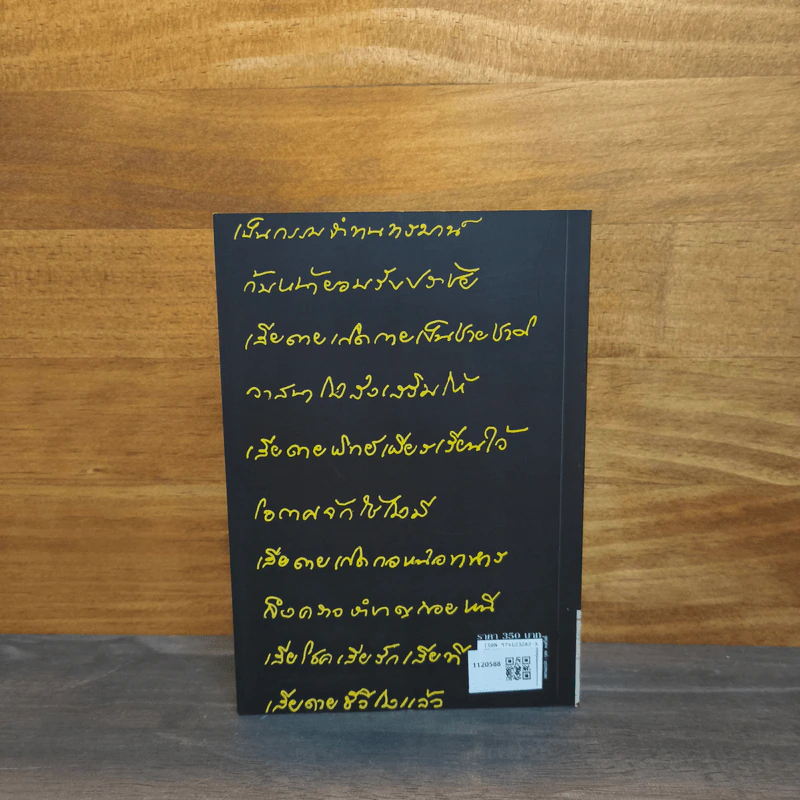 เป็นกรรมจำทนทรมาน์
ก้มหน้ายอมรับปราชัย
เสียดายเกิดกายเป็นชาย
วาสนาไป่ส่งเสริมให้
เสียดายเพียรเรียนไว้
โอกาสจักใช้ไป่มี
เสียดายเกิดกอหน่อทหาร
ถึงคราวถอยหนี
เสียโชคเสียรักเสียที
เสียดายชีวีไป่แล้ว
ราคา 350 บาท
ISBN
1120588